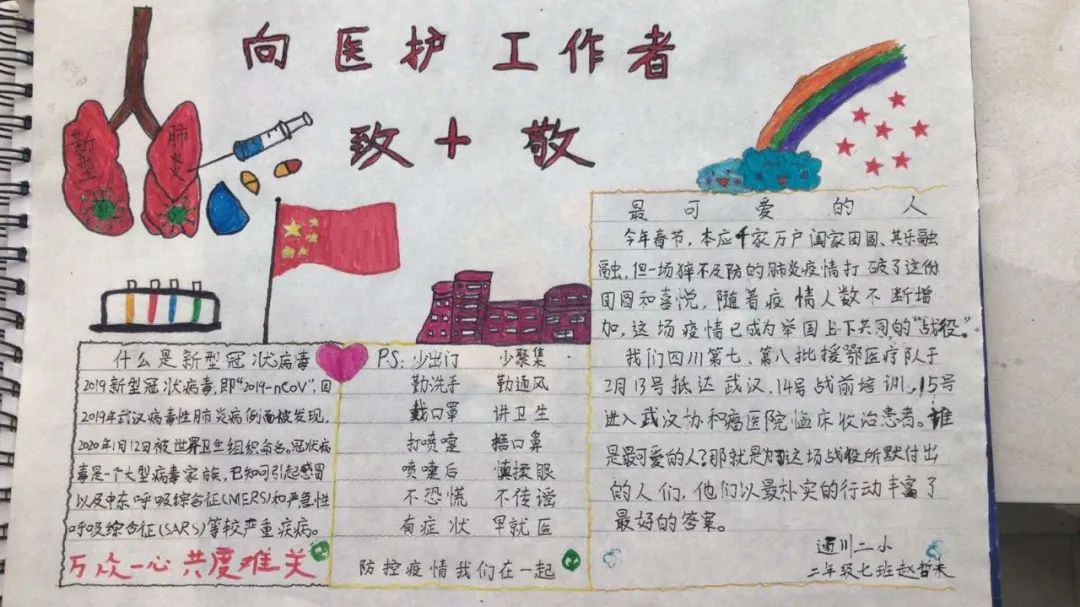 向医护工作者
致十敬
新型
肺炎
什么是新型冠状病毒
2019新型冠状病毒,即"2019-nCoV",因
2019年武汉病毒性肺炎病例而被发现,
2020年1月12日被世界卫生组织命名。冠状病
毒是一个大型病毒家族,已知可引起感冒
以及中东呼吸综合征(MERS)和严重急性
呼吸综合征(SARS)等较严重疾病。
万众一心 共度难关
PS: 少出门 少聚集
勤洗手 勤通风
戴口罩 讲卫生
打喷嚏 捂口鼻
喷嚏后 慎揉眼
不恐慌 不传谣
有症状 早就医
防控疫情我们在一起
最可爱的人
今年春节,本应千家万户阖家团圆、其乐融
融,但一场猝不及防的肺炎疫情打破了这份
团圆和喜悦,随着疫情人数不断增
加,这场疫情已成为举国上下共同的"战役"。
我们四川第七、第八批援鄂医疗队于
2月13号抵达武汉,14号战前培训,15号
进入武汉协和肿瘤医院临床收治患者。谁
是最可爱的人?那就是为这场战役所默付出
的人们,他们以最朴实的行动丰富了
最好的答案。
通川二小
二年级七班赵哲